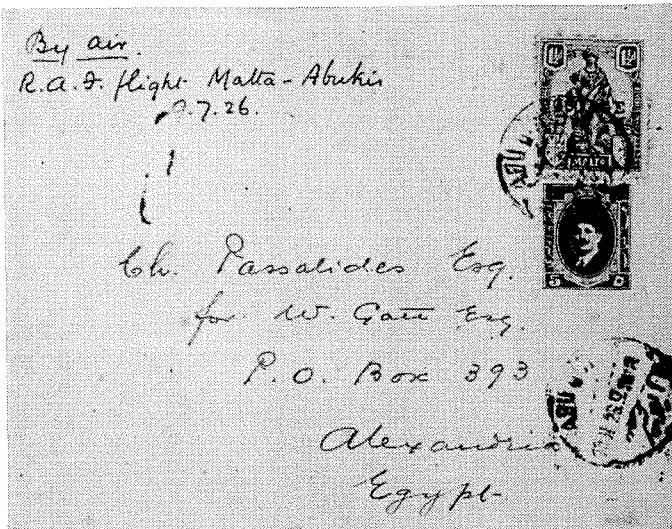 By air.
R.A.F. flight Malta - Abukir
.7.26.
Ch. Passalides Esq.
for W. Gatt Esq.
P.O. Box 393
Alexandria
Egypt
MALTA
5